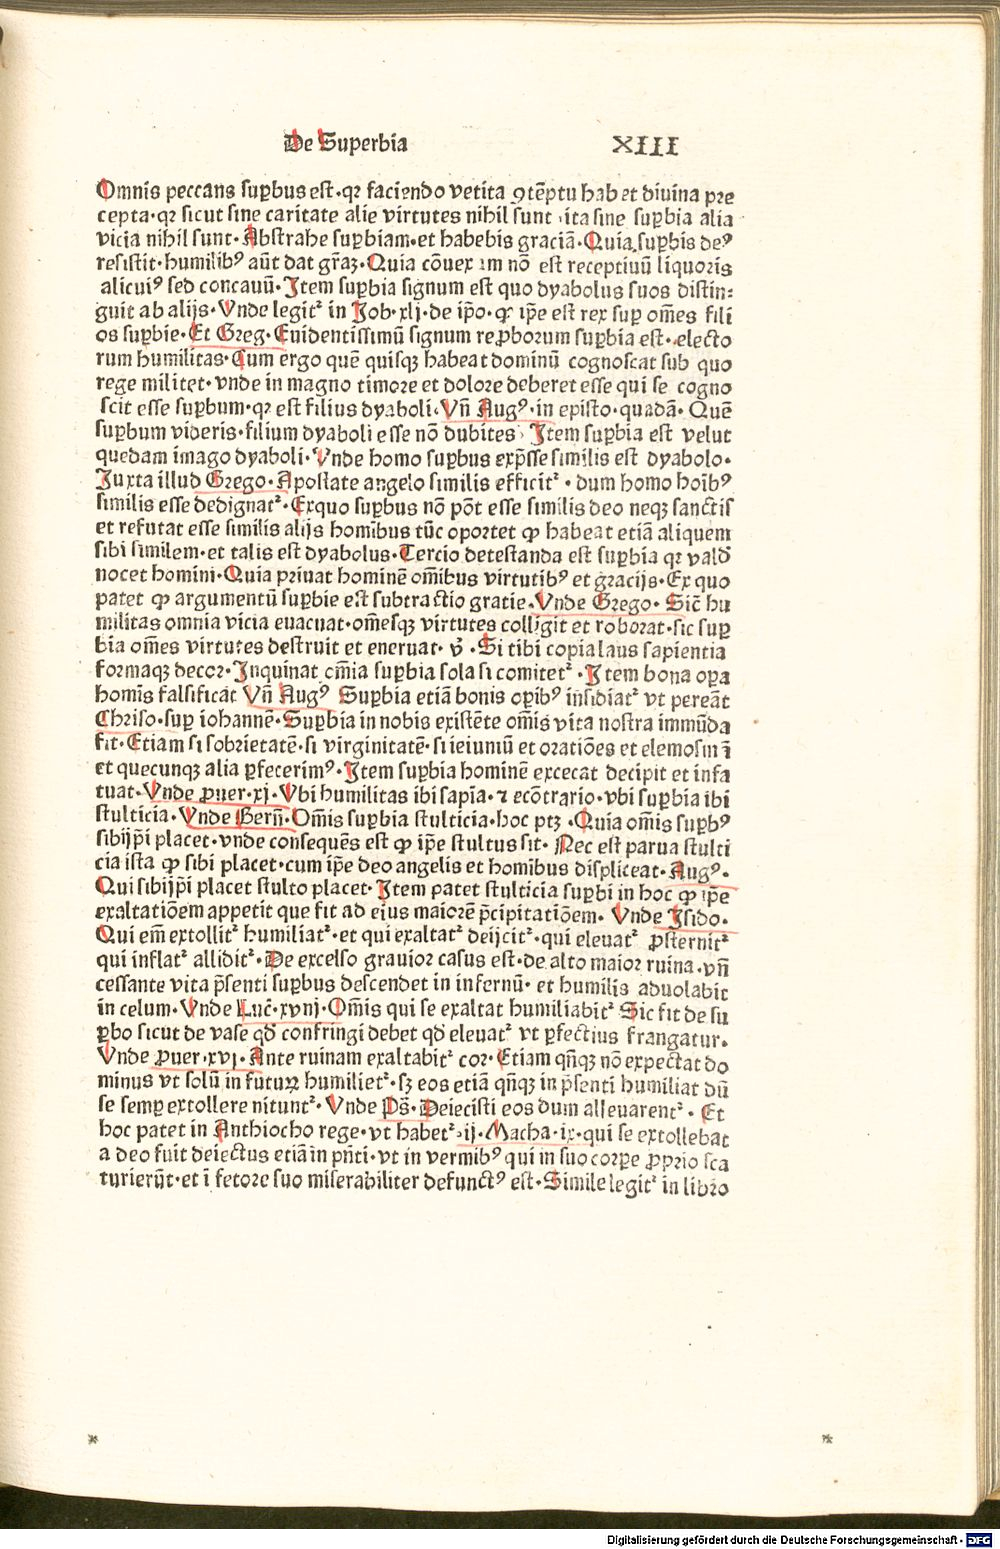 De Superbia XIII
Omnis peccans supbus est·qꝛ faciendo vetita ꝯtēptu habet diuina pre
cepta·qꝛ sicut sine caritate alie virtutes nihil sunt ·ita sine supbia alia
vicia nihil sunt·Abstrahe supbiam·et habebis graciā·Quia supbis de⁹
resistit·humilib⁹ aūt dat gr̄aꝫ·Quia cōuexum nō est receptiuū liquoris
alicui⁹ sed concauū·Item suꝑbia signum est quo dyabolus suos distin⸗
guit ab alijs·Vnde legit² in Job·xlj·de ip̄o·ꝙ ip̄e est rex suꝑ om̄es fili
os suꝑbie·Et Greg·Euidentissimū signum reꝓborum suꝑbia est·electo
rum humilitas·Cum ergo quē quisqꝫ habeat dominū cognoscat sub quo
rege militet·vnde in magno timore et dolore deberet esse qui se cogno
scit esse suꝑbum·qꝛ est filius dyaboli·Vn̄ Aug⁹·in episto·quadā·Quē
suꝑbum videris·filium dyaboli esse nō dubites· Item suꝑbia est velut
quedam imago dyaboli·Vnde homo suꝑbus exp̄sse similis est dyabolo·
Juxta illud Grego·Apostate angelo similis efficit²·dum homo hoīb⁹
similis esse dedignat²·Exquo suꝑbus nō pōt esse similis deo neqꝫ sanctis
et refutat esse similis alijs homībus tūc oportet ꝙ habeat etiā aliquem
sibi similem·et talis est dyabolus·Tercio detestanda est suꝑbia qꝛ vald̄
nocet homini·Quia priuat hominē om̄ibus virtutib⁹ et gracijs·Ex quo
patet ꝙ argumentū suꝑbie est subtractio gratie·Vnde Grego·Sic̄ hu
militas omnia vicia euacuat·om̄esqꝫ virtutes colligit et roborat·sic suꝑ
bia om̄es virtutes destruit et eneruat· v̓·Si tibi copia laus sapientia
formaqꝫ decor·Inquinat om̄ia suꝑbia sola si comitet²·Item bona oꝑa
homīs falsificat Vn̄ Aug⁹ Suꝑbia etiā bonis oꝑib⁹ insidiat² vt pereāt
Chriso·suꝑ iohannē·Suꝑbia in nobis existēte om̄is vita nostra immūda
fit·Etiam si sobrietatē·si virginitatē·si ieiuniū et oratiōes et elemosinā
et quecunqꝫ alia ꝑfecerim⁹·Item suꝑbia hominē excecat decipit et infa
tuat·Vnde ꝓuer·xj·Vbi humilitas ibi sapīa·⁊ ecōtrario·vbi suꝑbia ibi
stulticia·Vnde Bern̄·Om̄is suꝑbia stulticia·hoc ptꝫ·Quia om̄is suꝑb⁹
sibijp̄i placet·vnde consequēs est ꝙ ip̄e stultus sit· Nec est parua stulti
cia ista ꝙ sibi placet·cum ip̄e deo angelis et homībus displiceat·Aug⁹·
Qui sibijp̄i placet stulto placet·Item patet stulticia suꝑbi in hoc ꝙ ip̄e
exaltatiōem appetit que fit ad eius maiorē p̄cipitatiōem· Vnde Isido·
Qui em̄ extollit² humiliat²·et qui exaltat² deijcit²·qui eleuat² ꝓsternit²
qui inflat² allidit²·De excelso grauior casus est·de alto maior ruina·vn̄
cessante vita p̄senti suꝑbus descendet in infernū·et humilis aduolabit
in celum·Vnde Luc̄·xvnj·Om̄is qui se exaltat humiliabit² Sic fit de su
ꝑbo sicut de vase qd̄ confringi debet qd̄ eleuat² vt ꝑfectius frangatur·
Vnde ꝓuer·xvj·Ante ruinam exaltabit² cor·Etiam qn̄qꝫ nō expectat do
minus vt solū in futuꝝ humiliet²·sꝫ eos etiā qn̄qꝫ in p̄senti humiliat dū
se semꝑ extollere nitunt²·Vnde Ps̄·Deiecisti eos dum alleuarent²· Et
hoc patet in Anthiocho rege·vt habet²·ij·Macha·ix·qui se extollebat
a deo fuit deiectus etiā in pn̄ti·vt in vermib⁹ qui in suo corꝑe ꝓprio sca
turierūt·et ī fetore suo miserabiliter defunct⁹ est·Simile legit² in libro
Digitalisierung gefördert durch die Deutsche Forschungsgemeinschaft · DFG